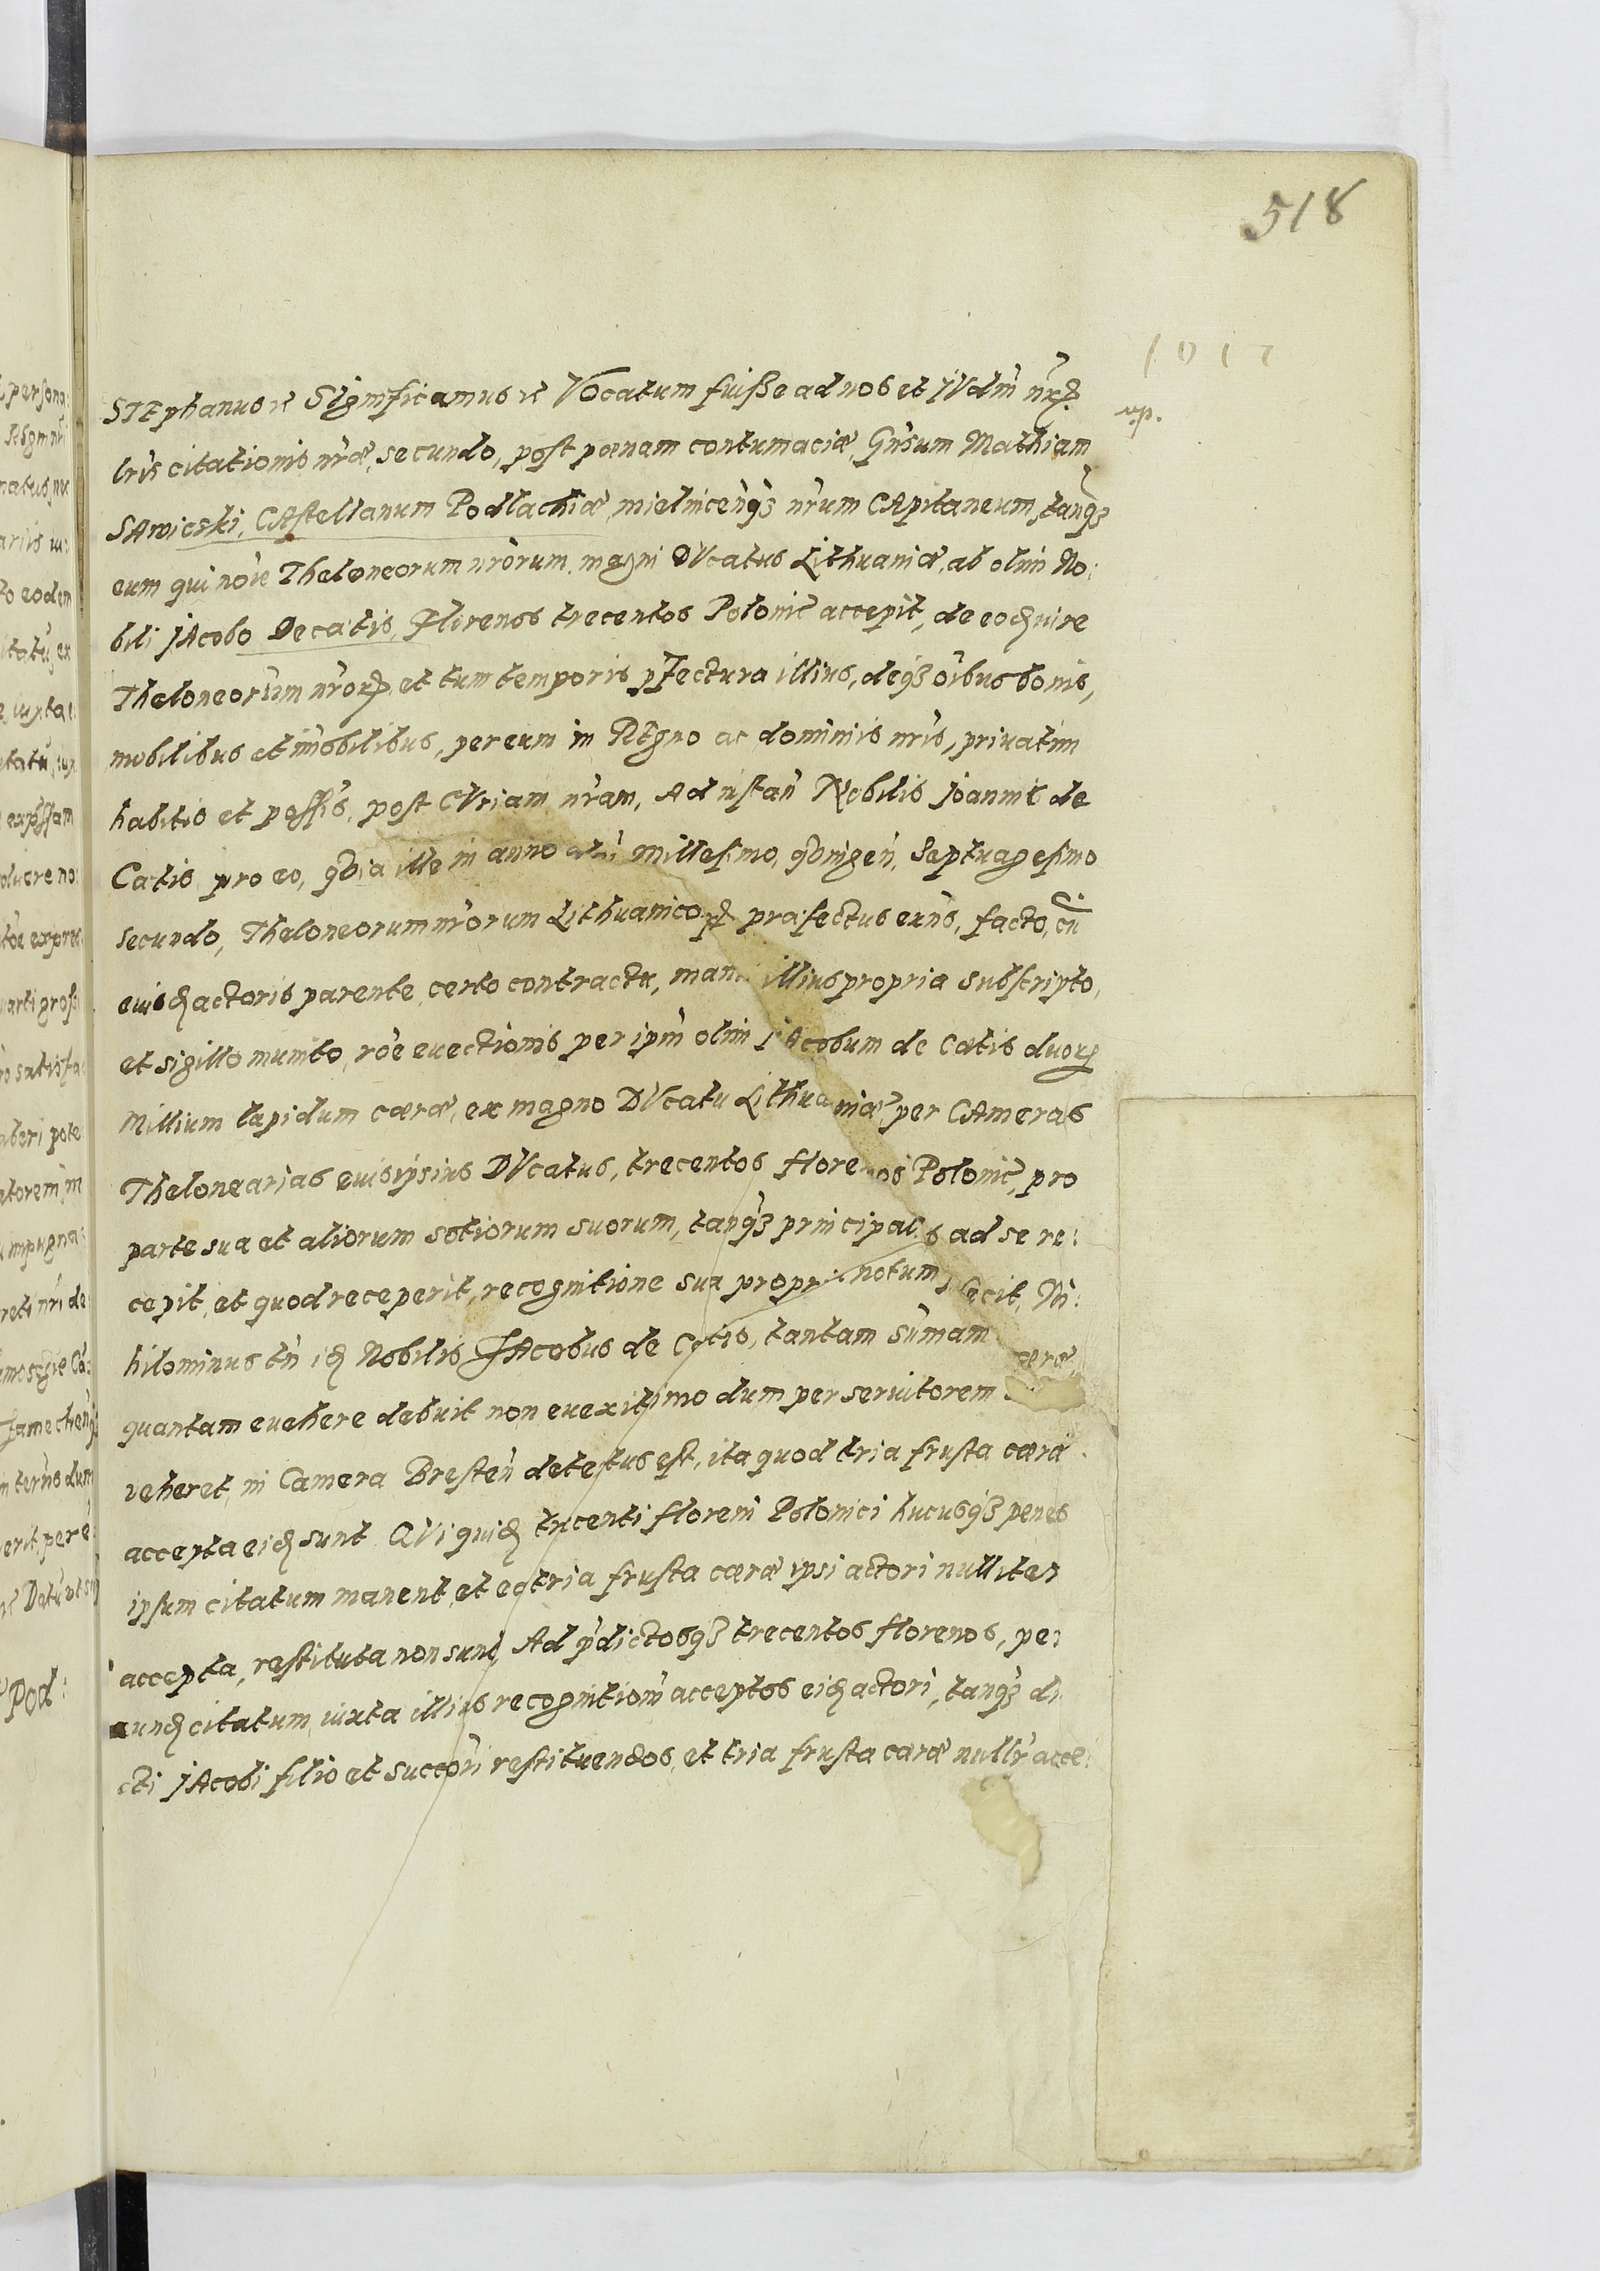 518
up.
STEphanus etc Significamus etc Vocatum fuisse ad nos et IVdm nrx
lris citationis nrae, secundo, post poenam contumaciae, Gnsum Mathiam
SAwicski, CAstellanum Podlachiae, mielnicenqz nrum CApitaneum, tanqz
eum qui noie Theloneorum nrorum magni DVcatus Lithuaniae, ab olim No:
bili JAcobo Decatis, Florenos trecentos Polonic accepit, de eoqz iure
Theloneorum nrorum, et tum temporis pfectura illius, deqz oibus bonis,
mobilibus et imobilibus, per eum in REgno ac dominiis nris, priuatim
habitis et possis, post CVriam nram, Ad instan Nobilis Joannis de
Catis, pro eo, qdia ille in anno millesimo, qdingen, Septuagesimo
secundo, Theloneorum nrorum Lithuanicorum praefectus exns, facto, cu
eiusdactoris parente certo contractu, manu illius propria Subscripto,
et sigillo munito, roe euectionis per ipm olim JAcobum de Catis duorum
Millium lapidum caerae, ex magno DVcatu Lithuaniae, per CAmeras
Thelonearias euisipsius DVcatus, trecentos florenos Polonic, pro
parte sua et aliorum sotiorum suorum, tanqz principalis ad se re:
cepit, et quod receperit, recognitione sua propria notum fecit, Ni:
hilominus tn id Nobilis JAcobus de Catis, tantam sumam caerae
quantam euehere debuit non euexit, imo dum per seruitorem
veheret, in Camera Bresten detetus est, ita quod tria frusta caera
accepta eid sunt QVi quid trecenti floreni Polonici hucusqz penes
ipsum citatum manent, et ea tria frusta caerae ipsi actori nulliter
accepta, restituta non sunt, Ad pdictosqz trecentos florenos, per
eund citatum, iuxta illius recognitionm acceptos eid actori, tanqz di
cti JAcobi filio et succori restituendos, et tria frusta caerae nullr acce: